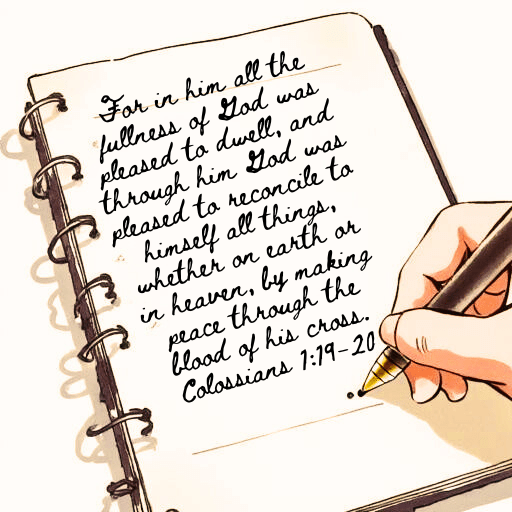 For in him all the
fullness of God was
pleased to dwell, and
through him God was
pleased to reconcile to
himself all things,
whether on earth or
in heaven, by making
peace through the
blood of his cross.
Colossians 1:19-20